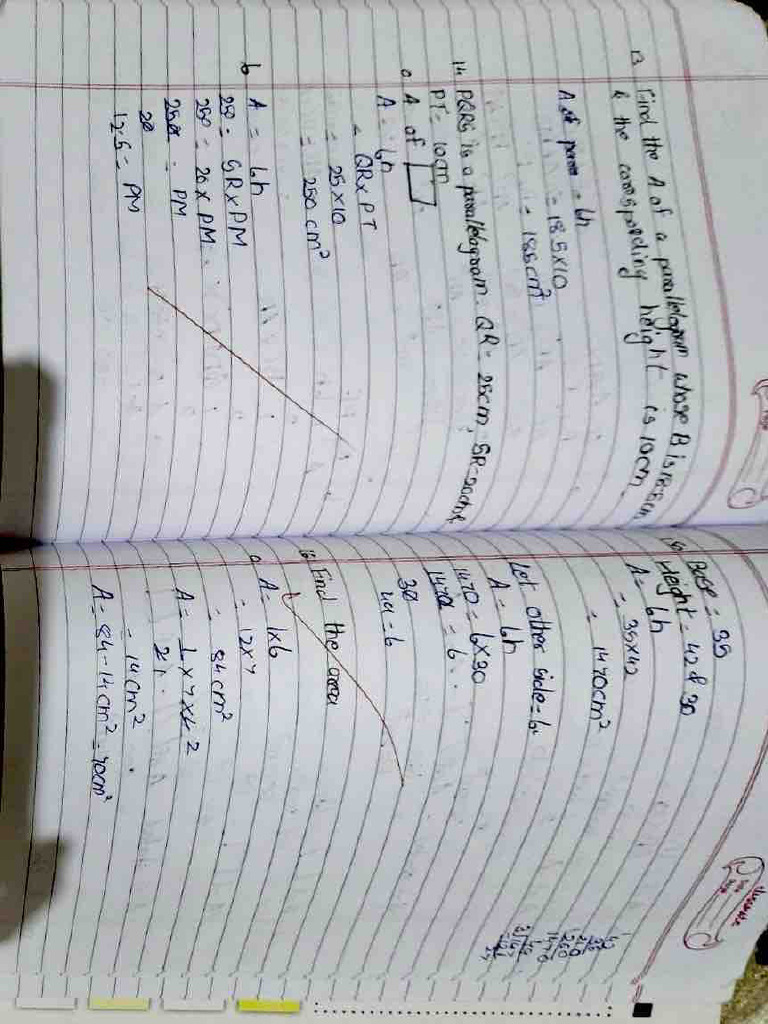 13 Find the A of a parallelogram whose B is 18.5cm
& the corresponding height is 10cm
A of param = bh
= 18.5×10
= 185cm²
14 PQRS is a parallelogram. QR = 25cm, SR=20cm &
PT = 10cm
a A of
A = bh
= QR×PT
= 25×10
= 250 cm²
b A = bh
250 = SR×PM
250 = 20×PM
250 = PM
20
12.5 = PM
15 Base = 35
Height = 42 & 30
A = bh
= 35×42
= 1470cm²
Let other side = b
A = bh
1470 = b×30
1470 = b
30
49 = b
16 Find the area
a A = l×b
= 12×7
= 84cm²
A = 1 × 7 × 4 2
2 1
= 14cm²
A = 84-14cm² = 70cm²